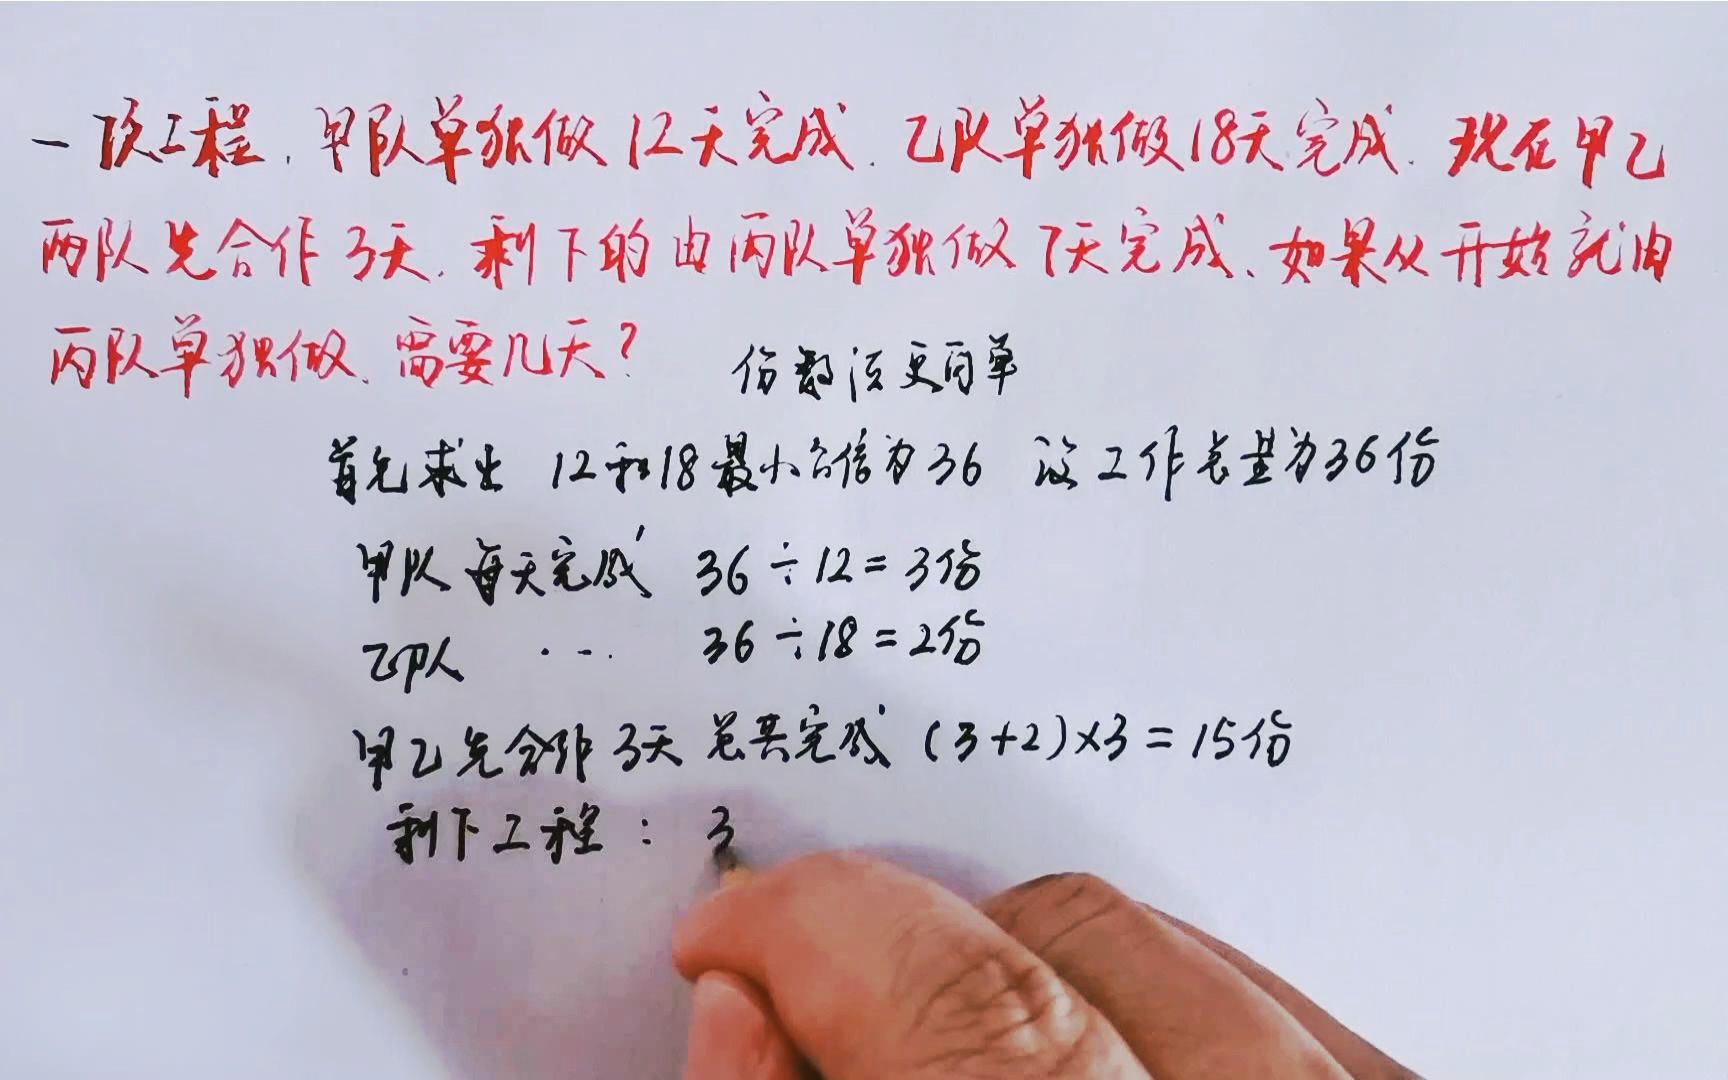 一项工程,甲队单独做12天完成.乙队单独做18天完成.现在甲乙
两队先合作3天.剩下的由丙队单独做7天完成、如果从开始就由
丙队单独做、需要几天?
份数法更简单
首先求出 12和18最小公倍为36 设工作总量为36份
甲队每天完成 36÷12=3份
乙队 ... 36÷18=2份
甲乙先合作3天总共完成(3+2)×3=15份
剩下工程:3